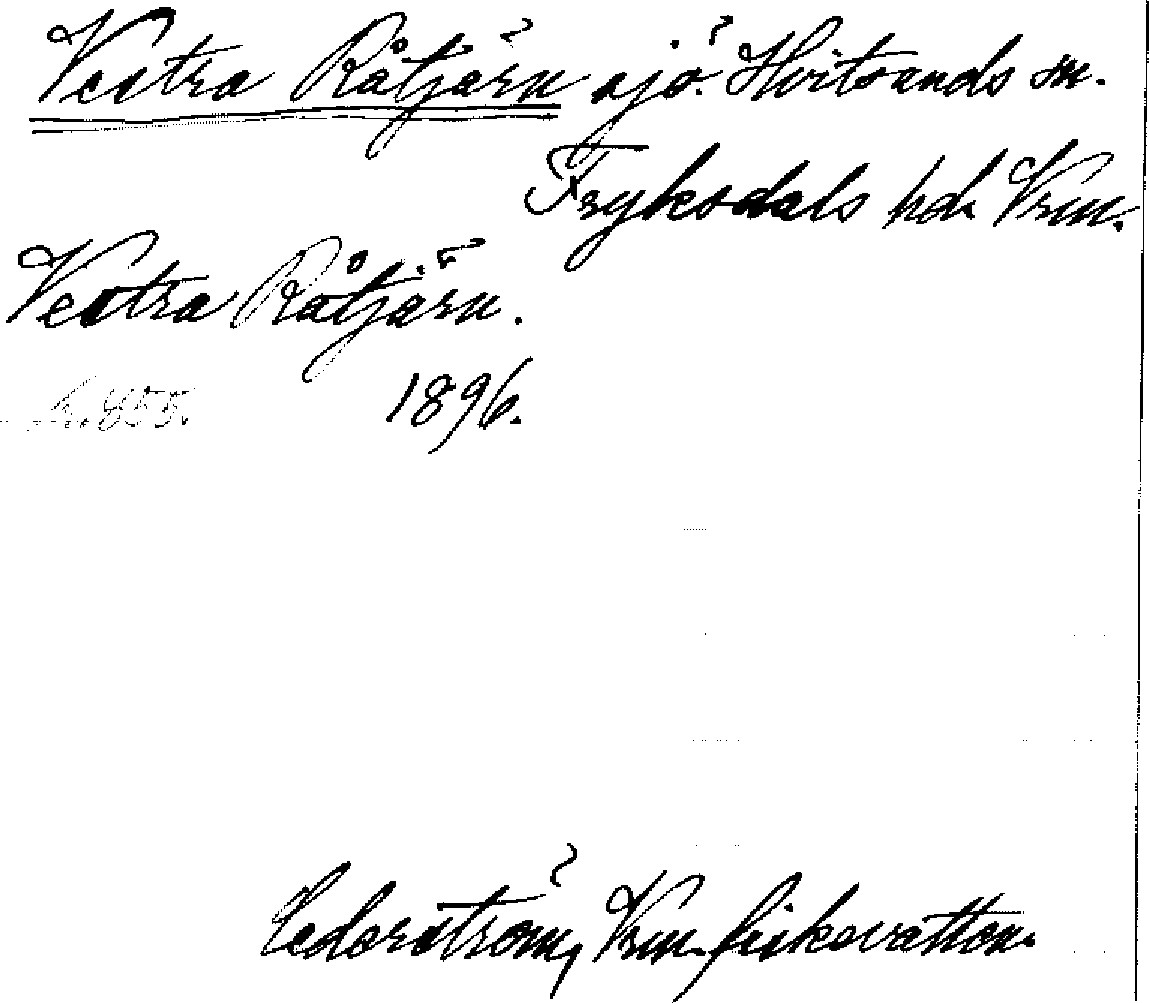 Vestra Råtjärn sjö. Hvitsands sn.
Fryksdals hd. Vrm.
Vestra Råtjärn.
1896.
Cederström, Vrm. fiskevatten.